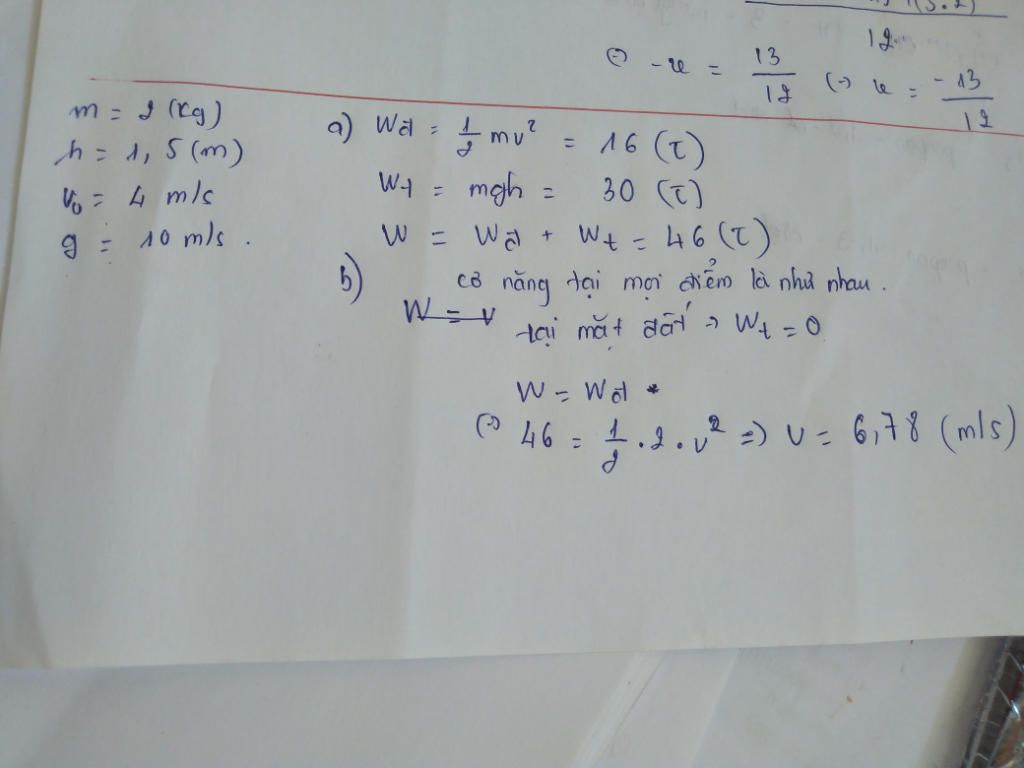 12
(=) -x = 13/12 (=) x = -13/12
m = 2 (kg)
h = 1,5 (m)
v₀ = 4 m/s
g = 10 m/s.
a) Wđ = 1/2 mv² = 16 (J)
Wt = mgh = 30 (J)
W = Wđ + Wt = 46 (J)
b) cơ năng tại mọi điểm là như nhau.
W = v
tại mặt đất => Wt = 0
W = Wđ
(=) 46 = 1/2 . 2 . v² => v = 6,78 (m/s)